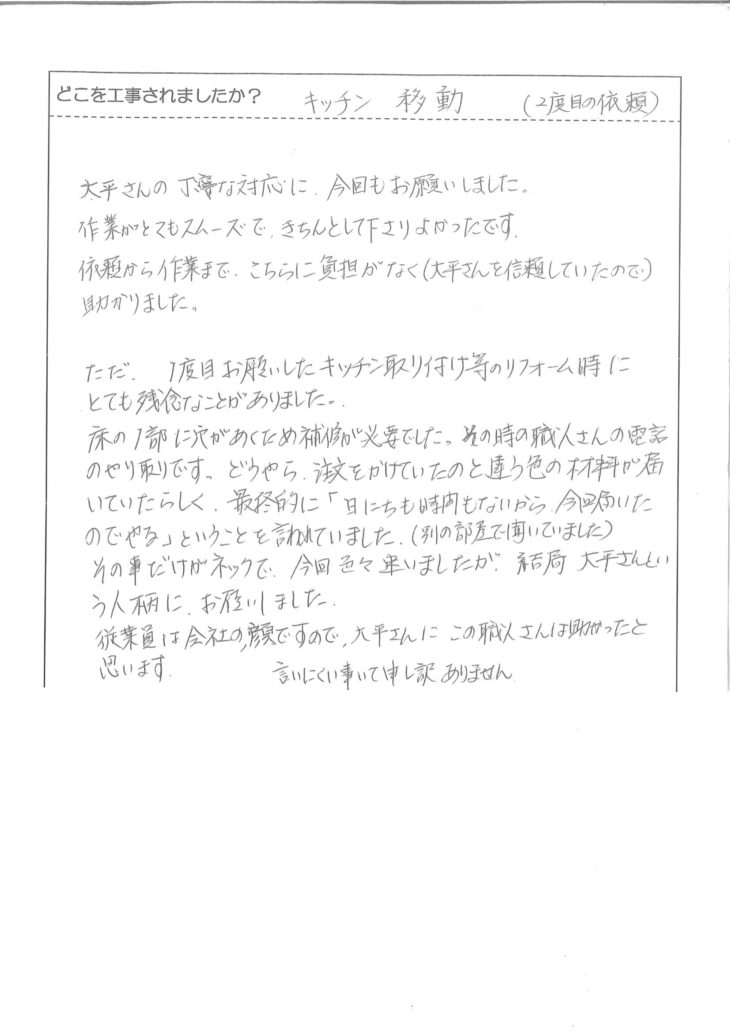 どこを工事されましたか？ キッチン 移動 (2度目の依頼)
大平さんの丁寧な対応に、今回もお願いしました。
作業がとてもスムーズで、きちんとして下さりよかったです。
依頼から作業まで、こちらに負担がなく(大平さんを信頼していたので)
助かりました。
ただ、1度目お願いしたキッチン取り付け等のリフォーム時に
とても残念なことがありました。
床の1部に穴があくため補修が必要でした。その時の職人さんの電話
のやり取りです。どうやら、注文をかけていたのと違う色の材料が届
いていたらしく、最終的に「日にちも時間もないから、今回届いた
のでやる」ということを言われていました。(別の部屋で聞いていました)
その事だけがネックで、今回色々迷いましたが、結局 大平さんとい
う人柄に、お願いしました。
従業員は会社の顔ですので、大平さんにこの職人さんは助かったと
思います。 言いにくい事いて申し訳ありません